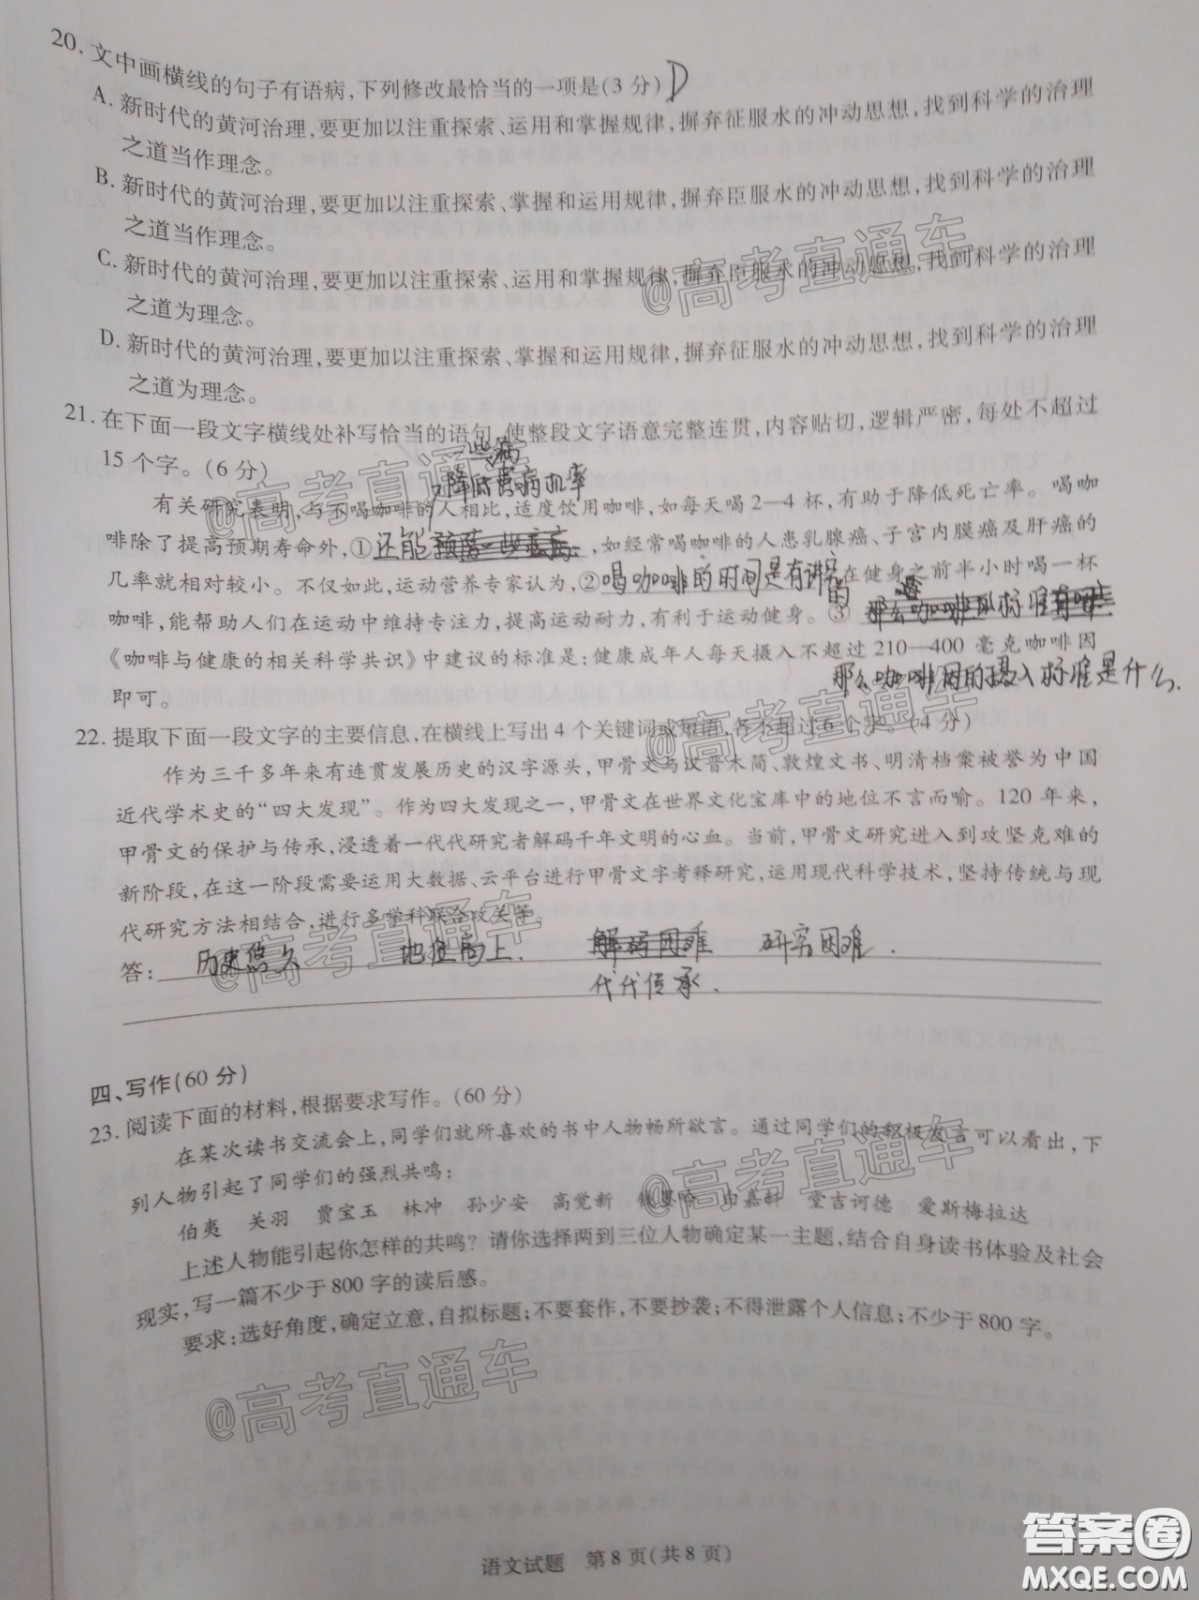 20. 文中画横线的句子有语病,下列修改最恰当的一项是(3分) D
A. 新时代的黄河治理,要更加以注重探索、运用和掌握规律,摒弃征服水的冲动思想,找到科学的治理
之道当作理念。
B. 新时代的黄河治理,要更加以注重探索、掌握和运用规律,摒弃臣服水的冲动思想,找到科学的治理
之道当作理念。
C. 新时代的黄河治理,要更加以注重探索、运用和掌握规律,摒弃臣服水的冲动思想,找到科学的治理
之道为理念。
D. 新时代的黄河治理,要更加以注重探索、掌握和运用规律,摒弃征服水的冲动思想,找到科学的治理
之道为理念。
21. 在下面一段文字横线处补写恰当的语句,使整段文字语意完整连贯,内容贴切,逻辑严密,每处不超过
15个字。(6分)
一些病
降低患病机率
有关研究表明,与不喝咖啡的人相比,适度饮用咖啡,如每天喝2—4杯,有助于降低死亡率。喝咖
啡除了提高预期寿命外,①还能预防一些疾病,如经常喝咖啡的人患乳腺癌、子宫内膜癌及肝癌的
几率就相对较小。不仅如此,运动营养专家认为,②喝咖啡的时间是有讲究的在健身之前半小时喝一杯
咖啡,能帮助人们在运动中维持专注力,提高运动耐力,有利于运动健身。③
《咖啡与健康的相关科学共识》中建议的标准是:健康成年人每天摄入不超过210—400毫克咖啡因
即可。
那么咖啡因的摄入标准是什么
22. 提取下面一段文字的主要信息,在横线上写出4个关键词或短语,各不超过6个字。(4分)
作为三千多年来有连贯发展历史的汉字源头,甲骨文与汉晋木简、敦煌文书、明清档案被誉为中国
近代学术史的“四大发现”。作为四大发现之一,甲骨文在世界文化宝库中的地位不言而喻。120年来,
甲骨文的保护与传承,浸透着一代代研究者解码千年文明的心血。当前,甲骨文研究进入到攻坚克难的
新阶段,在这一阶段需要运用大数据、云平台进行甲骨文字考释研究,运用现代科学技术,坚持传统与现
代研究方法相结合,进行多学科联合攻关等。
答: 历史悠久 地位高上. 解码困难 研究困难.
代代传承.
四、写作(60分)
23. 阅读下面的材料,根据要求写作。(60分)
在某次读书交流会上,同学们就所喜欢的书中人物畅所欲言。通过同学们的积极发言可以看出,下
列人物引起了同学们的强烈共鸣:
伯夷 关羽 贾宝玉 林冲 孙少安 高觉新 骆思哈 由嘉轩 堂吉诃德 爱斯梅拉达
上述人物能引起你怎样的共鸣?请你选择两到三位人物确定某一主题,结合自身读书体验及社会
现实,写一篇不少于800字的读后感。
要求:选好角度,确定立意,自拟标题;不要套作,不要抄袭;不得泄露个人信息;不少于800字。
@高考直通车
@高考直通车
@高考直通车
@高考直通车
@高考直通车
@高考直通车
语文试题 第8页(共8页)
答案圈
MXQE.COM